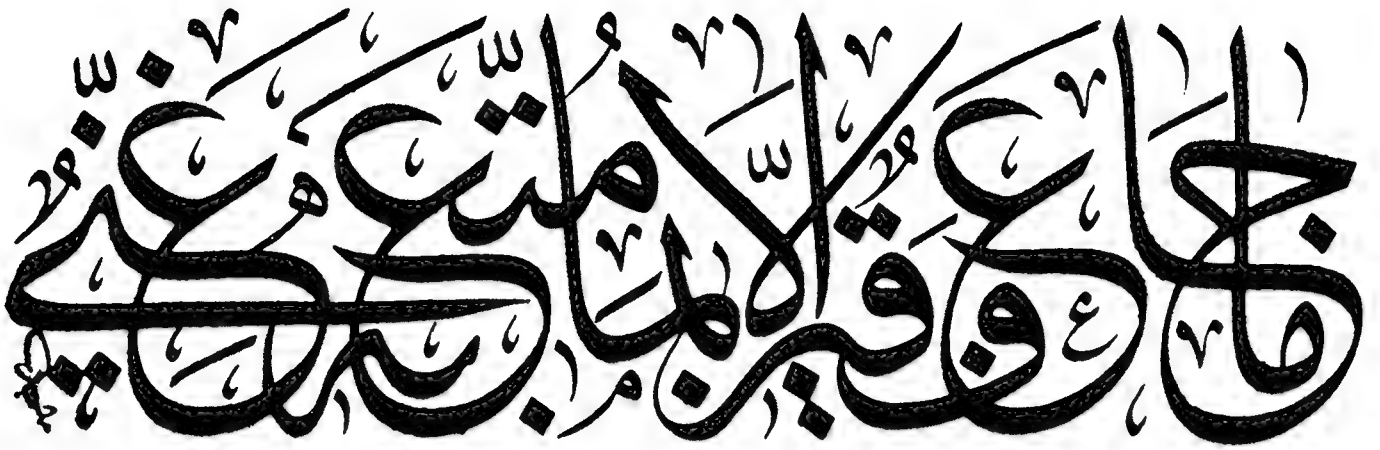 مَا جَاعَ فَقِيرٌ إِلَّا بِمَا مُتِّعَ بِهِ غَنِيٌّ